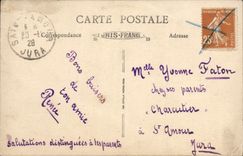 CARTE POSTALE
Correspondance
PARIS-FRANCE
JURA
28
25
Bons baisers
de ton amie
Renée
Salutations distinguées à tes parents
Melle Yvonne Faton
chez ses parents
Charcutier
à St Amour
Jura